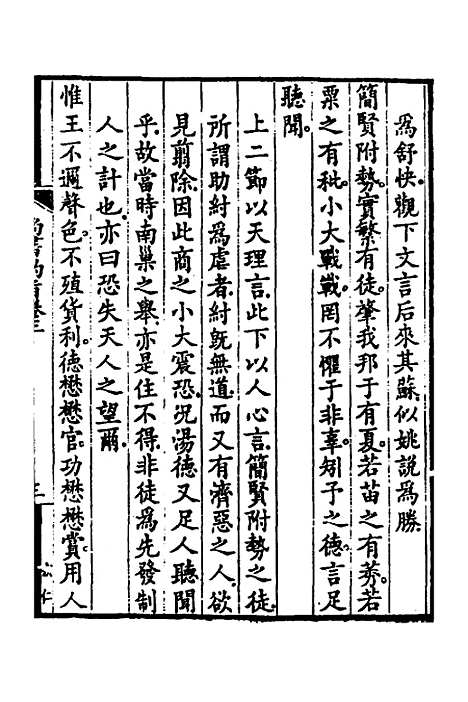 爲舒快觀下文言后來其蘇似姚說爲勝
簡賢附勢。實繁有徒。肇我邦于有夏。若苗之有莠。若
粟之有秕。小大戰戰。罔不懼于非辜。矧予之德。言足
聽聞。
上二節以天理言。此下以人心言。簡賢附勢之徒。
所謂助紂爲虐者。紂旣無道。而又有濟惡之人。欲
見翦除。因此商之小大震恐。况湯德又足人聽聞
乎。故當時南巢之舉。亦是住不得。非徒爲先發制
人之計也。亦曰恐失天人之望爾。
惟王不邇聲色。不殖貨利。德懋懋官。功懋懋賞。用人
尚書
三